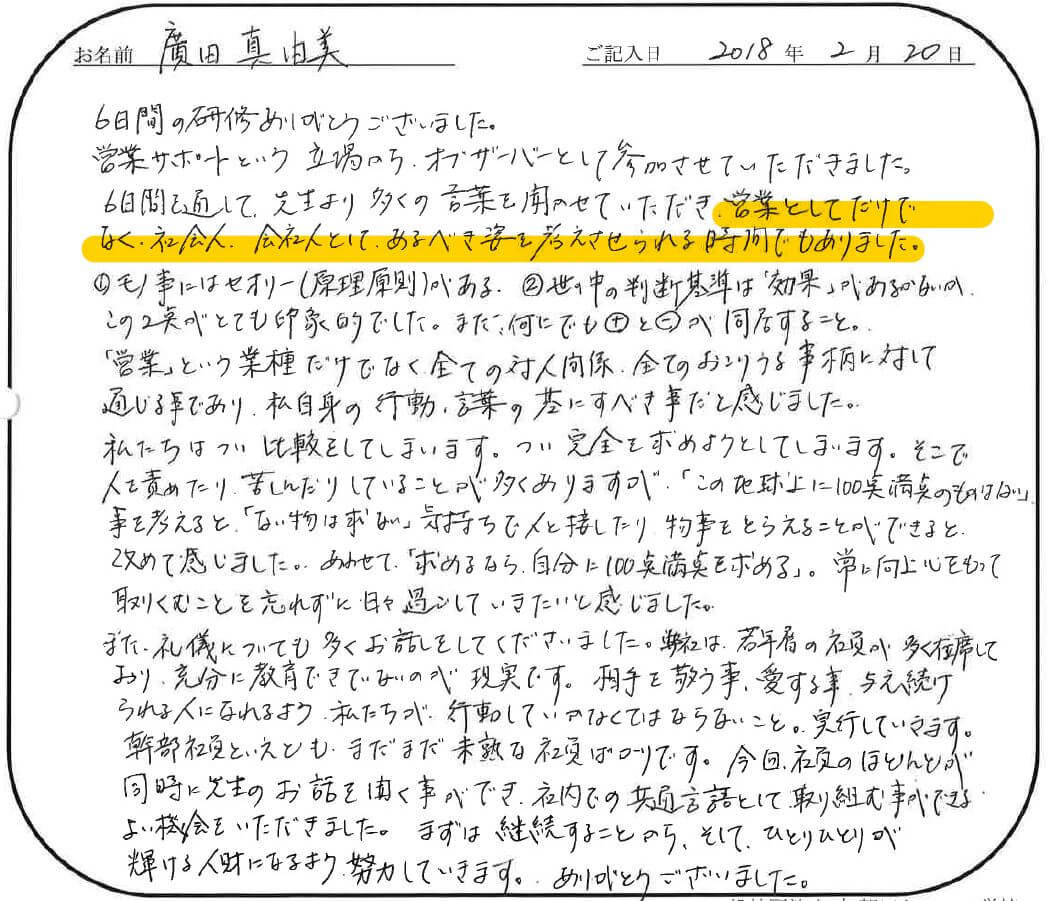 お名前 廣田 真由美 ご記入日 2018年2月20日
6日間の研修ありがとうございました。
営業サポートという立場から、オブザーバーとして参加させていただきました。
6日間を通して、先生より多くの言葉を聞かせていただき、営業としてだけで
なく、社会人、会社人として、あるべき姿を考えさせられる時間でもありました。
①モノ事にはセオリー(原理原則)がある、②世の中の判断基準は「効果」があるかないか、
この2点がとても印象的でした。また、何にでも⊕と⊖が同居すること。
「営業」という業種だけでなく全ての対人関係、全てのおこりうる事柄に対して
通じる事であり、私自身の行動、言葉の基にすべき事だと感じました。
私たちはつい比較をしてしまいます。つい完全を求めようとしてしまいます。そこで
人を責めたり、苦しんだりしていることが多くありますが、「この地球上に100点満点のものはない」
事を考えると、「ない物は求ない」気持ちで人と接したり、物事をとらえることができると、
改めて感じました。あわせて、「求めるなら、自分に100点満点を求める」。常に向上心をもって
取りくむことを忘れずに日々過ごしていきたいと感じました。
また、礼儀についても多くお話しをしてくださいました。弊社は、若年層の社員が多く在席して
おり、充分に教育できてないのが現実です。相手を敬う事、愛する事、与え続け
られる人になれるよう、私たちが、行動していかなくてはならないこと。実行していきます。
幹部社員といえども、まだまだ未熟な社員ばかりです。今回、社員のほとんどが
同時に先生のお話を聞く事ができ、社内での共通言語として取り組む事ができる
よい機会をいただきました。まずは継続することから、そして、ひとりひとりが
輝ける人財になるよう、努力していきます。ありがとうございました。